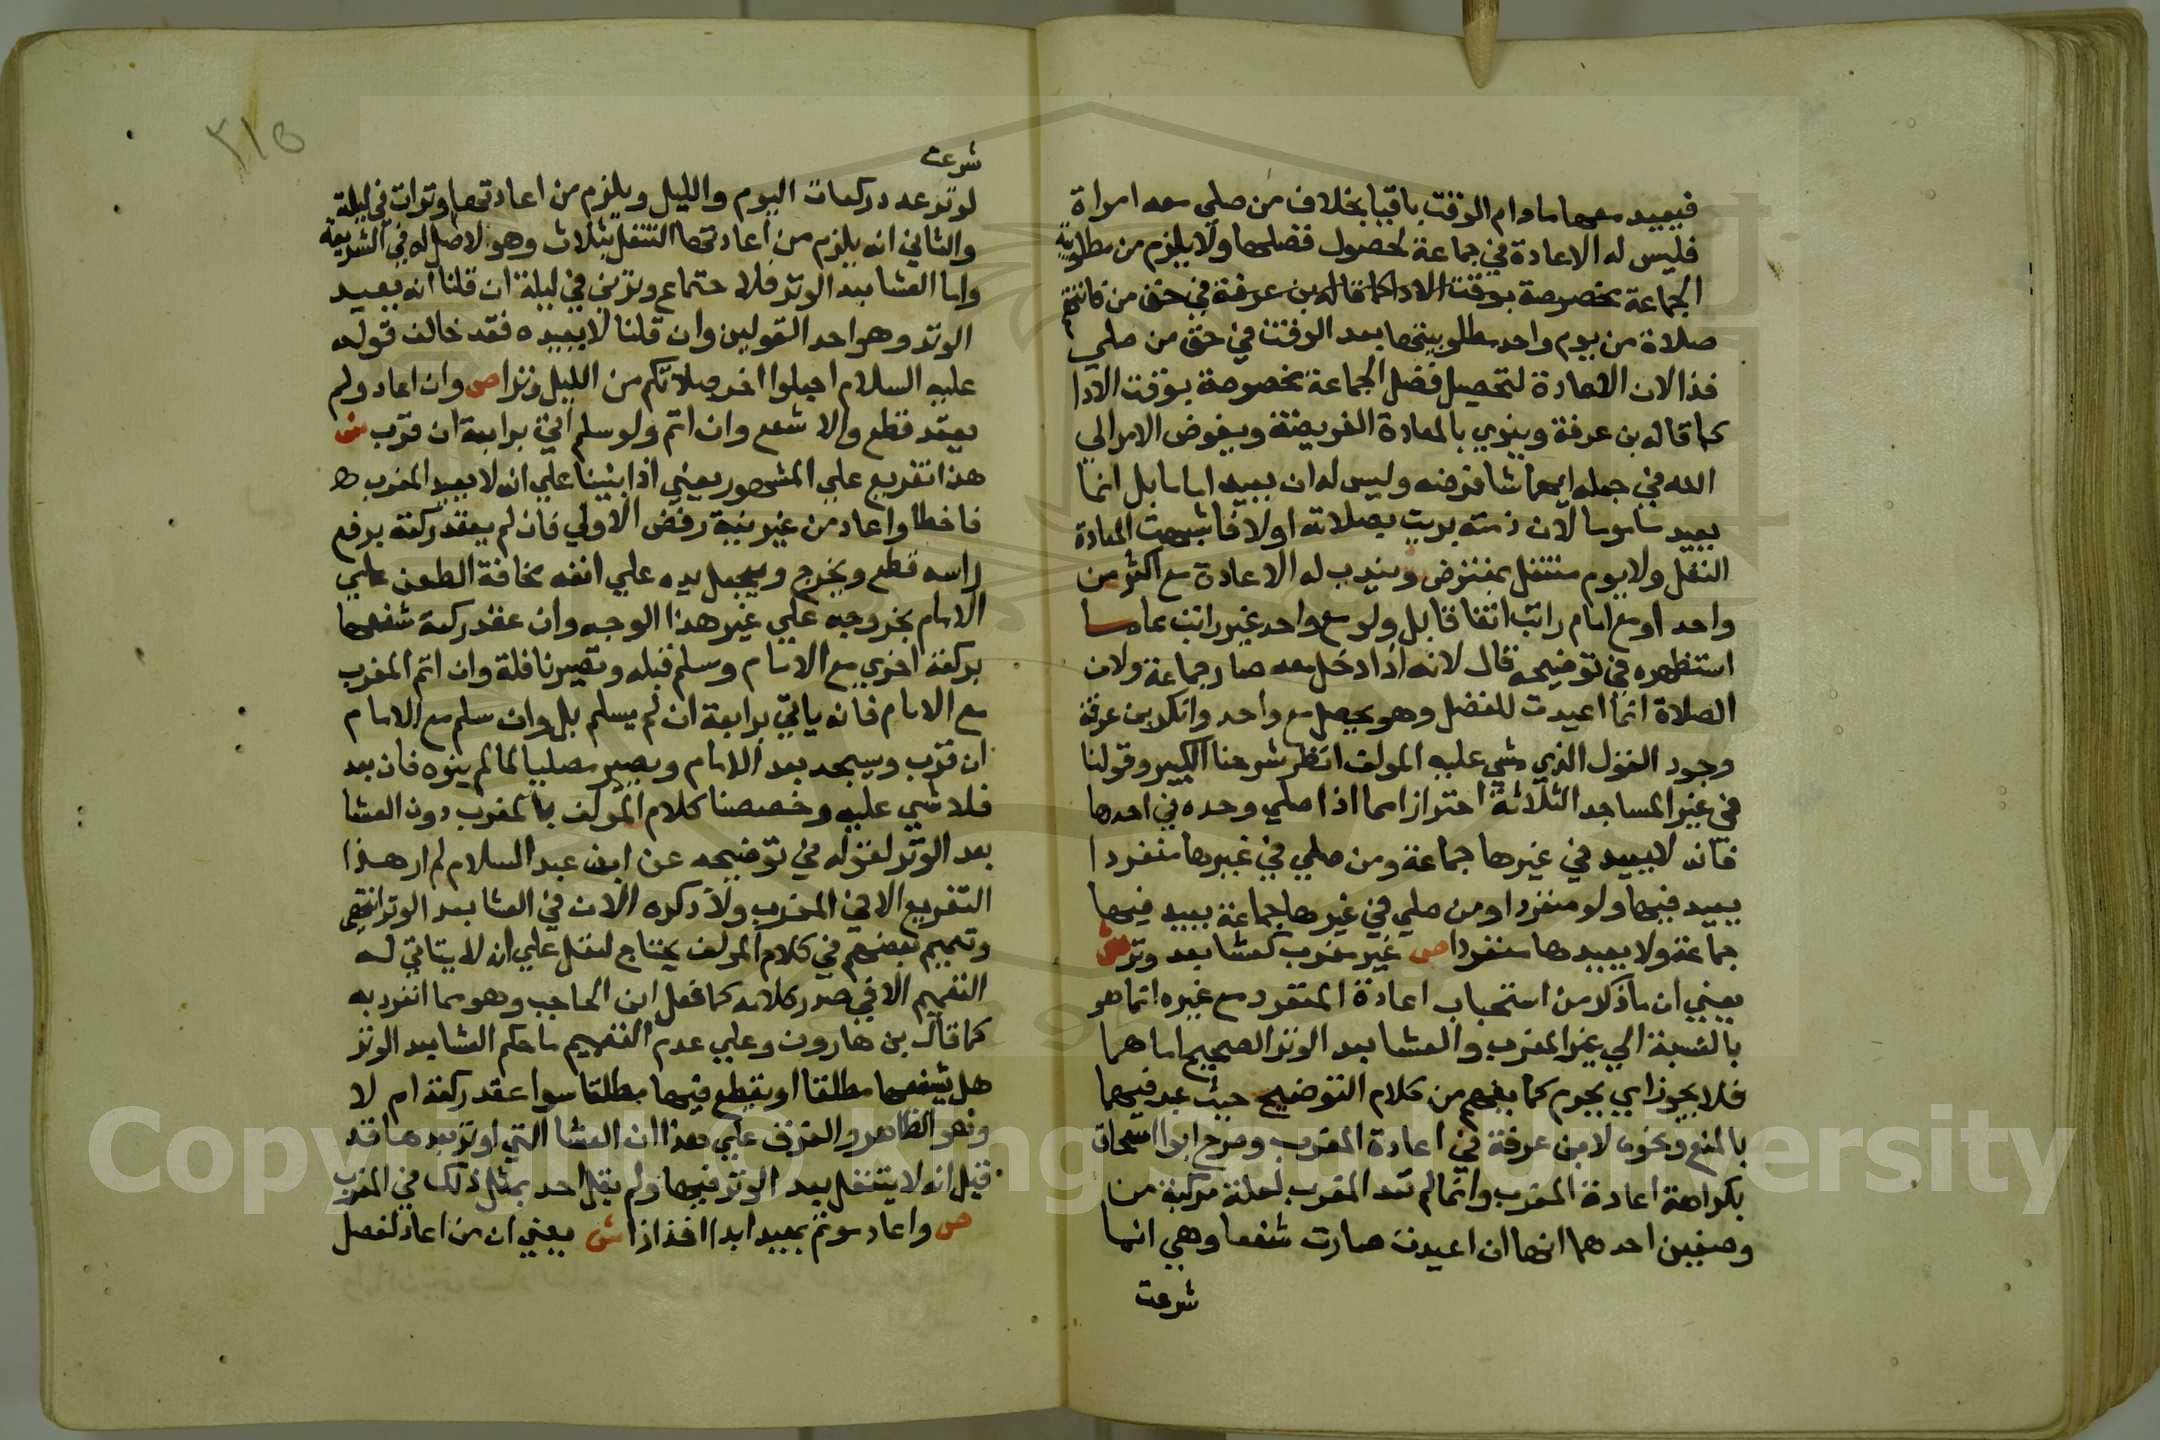 فيعيد معها مادام الوقت باقيا بخلاف من صلي معه امراة
فليس له الاعادة في جماعة لحصول فضلها ولا يلزم من مطلوبية
الجماعة بخصوصة بوقت الاداكما قاله بن عرفة في حق من فاتته
صلاة من يوم واحد مطلوبيتها بعد الوقت في حق من صلي
فذا لان الاعادة لتحصيل فضل الجماعة مخصوصة بوقت الادا
كما قاله بن عرفة وينوي بالمعادة الفريضة ويفوض الامر الي
الله في جعله ايهما شا فرضه وليس له ان يعيد اماما بل انما
يعيد ماموما لان ذمته بريت بصلاته اولا فاشبهت المعادة
النفل ولا يوم متنفل بمفترض ويندب له الاعادة مع اكثر من
واحد او مع امام راتب اتفاقا بل ولو مع واحد غير راتب علي ما
استظهره في توضيحه قال لانه اذا دخل معه صار جماعة ولان
الصلاة انما اعيدت للفضل وهو يحصل مع واحد وانكر بن عرفة
وجود القول الذي مشي عليه المولف انظر شرحنا الكبير وقولنا
في غير المساجد الثلاثة احترازا مما اذا صلي وحده في احدها
فانه لا يعيد في غيرها جماعة ومن صلي في غيرها منفردا
يعيد فيها ولو منفردا ومن صلي في غيرها جماعة يعيد فيها
جماعة ولا يعيدها منفردا ص غير مغرب كعشا بعد وتر ش
يعني ان ما ذكر من استحباب اعادة المنفرد مع غيره انما هو
بالنسبة الي غير المغرب والعشا بعد الوتر الصحيح اما هما
فلا يجوز اي يحرم كما يفهم من كلام التوضيح حيث عبر فيهما
بالمنع ونحوه لابن عرفة في اعادة المغرب وصرح ابوا اسحاق
بكراهة اعادة المغرب وانما لم تعد المغرب لعلة مركبة من
وصفين احدهما انها ان اعيدت صارت شفعا وهي انما
شرعت
٣١٥
شرعت
لوتر عدد ركعات اليوم والليل ويلزم من اعادتها وتران في ليلة
والثاني انه يلزم من اعادتها التنفل بثلاث وهو لا اصل له في الشريعة
واما العشا بعد الوتر فلاجتماع وترين في ليلة ان قلنا انه يعيد
الوتر وهو احد القولين وان قلنا لا يعيده فقد خالف قوله
عليه السلام اجعلوا اخر صلاتكم من الليل وترا ص وان اعاد ولم
يعقد قطع والا شفع وان اتم ولو سلم اتي برابعة ان قرب ش
هذا تفريع علي المشهور يعني اذا بنينا علي انه لا يعيد المغرب
فاخطا واعاد من غير نية رفض الاولي فان لم يعقد ركعة برفع
راسه قطع ويخرج ويجعل يده علي انفه مخافة الطعن علي
الامام بخروجه علي غير هذا الوجه وان عقد ركعة شفعها
بركعة اخري مع الامام وسلم قبله وتصير نافلة وان اتم المغرب
مع الامام فانه ياتي برابعة ان لم يسلم بل وان سلم مع الامام
ان قرب ويسجد بعد الامام ويصير مصليا لما لم ينوه فان بعد
فلا شي عليه وخصصنا كلام المولف بالمغرب دون العشا
بعد الوتر لقوله في توضيحه عن ابن عبد السلام لم ار هذا
التفريع الا في المغرب ولا ذكره الان في العشا بعد الوتر انتهي
وتعميم بعضهم في كلام المولف يحتاج لنقل علي انه لا يتاتي له
التعميم الا في صدر كلامه كما فعل ابن الحاجب وهو مما انفرد به
كما قال بن هارون وعلي عدم التعميم ما حكم العشا بعد الوتر
هل يشفعها مطلقا او يقطع فيها مطلقا سوا عقد ركعة ام لا
وهو الظاهر والفرق علي هذا ان العشا التي اوتر بعدها قد
قيل انه لا يتنفل بعد الوتر فيها ولم يقل احد بمثل ذلك في المغرب
ص واعاد موتم بمعيد ابدا افذاذا ش يعني ان من اعاد لفضل
Copyright © King Saud University